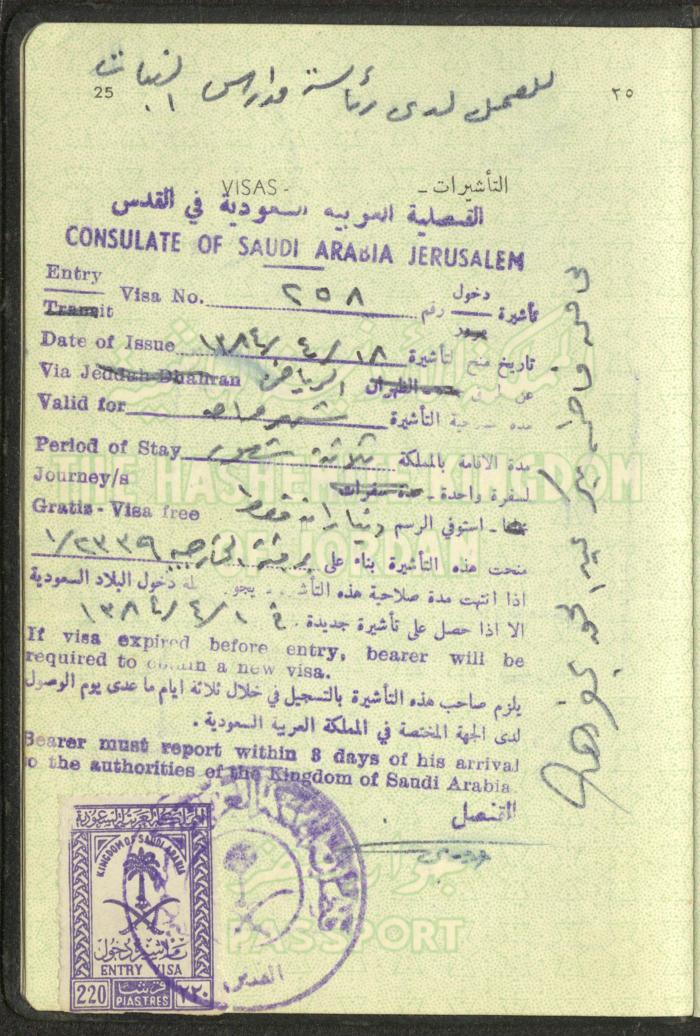 للعمل لدى رئاسة مدارس البنات
25
٢٥
VISAS -
التأشيرات -
القنصلية العربيه السعودية في القدس
CONSULATE OF SAUDI ARABIA JERUSALEM
Entry
دخول
Visa No.
٢٥٨
تأشيرة رقم
Transit
Date of Issue ١٨/٤/١٣٨٤ تاريخ منح التأشيرة
Via Jeddah-Dhahran الرياض الظهران عن طريق
Valid for شهر واحد مدة صلاحية التأشيرة
Period of Stay ثلاثة شهور مدة الاقامة بالمملكة
Journey/s
لسفرة واحدة - عدة سفرات
Gratis - Visa free
استوفي الرسم ديناران فقط
منحت هذه التأشيرة بناء على برقية الخارجيه ١/٢٣٣٩
اذا انتهت مدة صلاحية هذه التأشيرة يجوز له دخول البلاد السعودية
الا اذا حصل على تأشيرة جديدة . في ١٠/٤/١٣٨٤
If visa expired before entry, bearer will be
required to obtain a new visa.
يلزم صاحب هذه التأشيرة بالتسجيل في خلال ثلاثة ايام ما عدى يوم الوصول
لدى الجهة المختصة في المملكة العربية السعودية .
Bearer must report within 3 days of his arrival
to the authorities of the Kingdom of Saudi Arabia
القنصل
المملكة العربية السعودية
KINGDOM OF SAUDI ARABIA
تأشيرة دخول
ENTRY VISA
220
PIASTRES
قرشا
٢٢٠
القدس
THE HASHEMITE KINGDOM
OF JORDAN
جواز سفر
PASSPORT